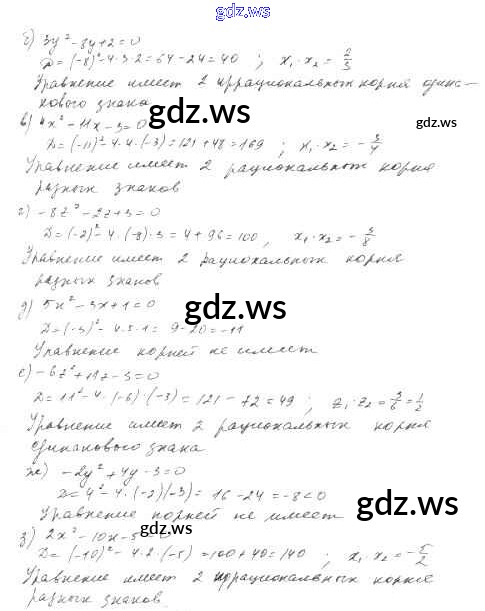 gdz.ws
б) 3y² - 8y + 2 = 0
D = (-8)² - 4·3·2 = 64 - 24 = 40 ; x₁·x₂ = 2/3
Уравнение имеет 2 иррациональных корня одина-
кового знака
gdz.ws
в) 4x² - 11x - 3 = 0
gdz.ws
D = (-11)² - 4·4·(-3) = 121 + 48 = 169 ; x₁·x₂ = -3/4
Уравнение имеет 2 рациональных корня
разных знаков
г) -8z² - 2z + 3 = 0
D = (-2)² - 4·(-8)·3 = 4 + 96 = 100, x₁·x₂ = -3/8
Уравнение имеет 2 рациональных корня
разных знаков
gdz.ws
д) 5x² - 3x + 1 = 0
D = (-3)² - 4·5·1 = 9 - 20 = -11
Уравнение корней не имеет
е) -6z² + 11z - 3 = 0
D = 11² - 4·(-6)·(-3) = 121 - 72 = 49 ; z₁·z₂ = 3/6 = 1/2
Уравнение имеет 2 рациональных корня
одинакового знака
ж) -2y² + 4y - 3 = 0
D = 4² - 4·(-2)(-3) = 16 - 24 = -8 < 0
gdz.ws
Уравнение корней не имеет
gdz.ws
з) 2x² - 10x - 5 = 0
D = (-10)² - 4·2·(-5) = 100 + 40 = 140 ; x₁·x₂ = -5/2
Уравнение имеет 2 иррациональных корня
разных знаков